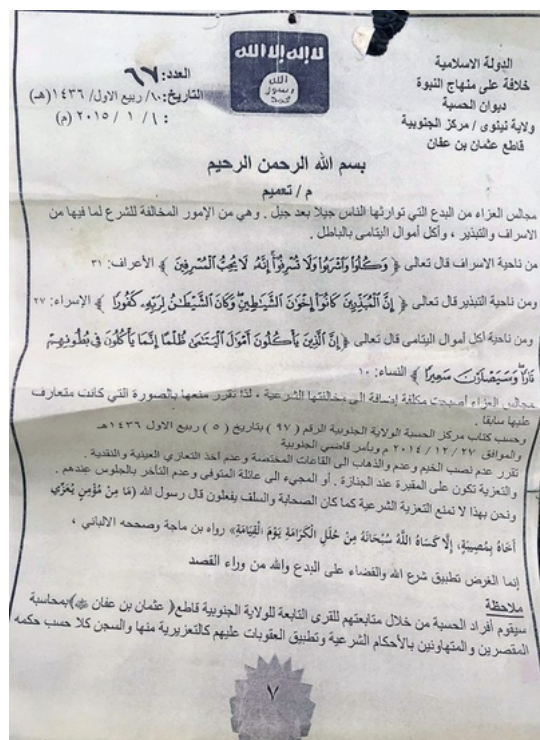 الدولة الاسلامية
خلافة على منهاج النبوة
ديوان الحسبة
ولاية نينوى / مركز الجنوبية
قاطع عثمان بن عفان
لا إله إلا الله
الله
رسول
محمد
العدد: ٦٧
التاريخ: ١٠/ ربيع الاول/ ١٤٣٦(هـ)
١ / ١ / ٢٠١٥ (م)
بسم الله الرحمن الرحيم
م / تعميم
مجالس العزاء من البدع التي توارثها الناس جيلا بعد جيل . وهي من الإمور المخالفة للشرع لما فيها من
الاسراف والتبذير ، وأكل أموال اليتامى بالباطل.
من ناحية الاسراف قال تعالى ﴿ وَكُلُوا وَاشْرَبُوا وَلَا تُسْرِفُوا إِنَّهُ لَا يُحِبُّ الْمُسْرِفِينَ ﴾ الأعراف: ٣١
ومن ناحية التبذير قال تعالى ﴿ إِنَّ الْمُبَذِّرِينَ كَانُوا إِخْوَانَ الشَّيَاطِينِ وَكَانَ الشَّيْطَانُ لِرَبِّهِ كَفُورًا ﴾ الإسراء: ٢٧
ومن ناحية أكل أموال اليتامى قال تعالى ﴿ إِنَّ الَّذِينَ يَأْكُلُونَ أَمْوَالَ الْيَتَامَى ظُلْمًا إِنَّمَا يَأْكُلُونَ فِي بُطُونِهِمْ
نَارًا وَسَيَصْلَوْنَ سَعِيرًا ﴾ النساء: ١٠
مجالس العزاء أصبحت مكلفة إضافة الى مخالفتها الشرعية ، لذا تقرر منعها بالصورة التي كانت متعارف
عليها سابقا .
وحسب كتاب مركز الحسبة الولاية الجنوبية الرقم ( ٩٧ ) بتاريخ ( ٥ ) ربيع الاول ١٤٣٦هـ
والموافق ٢٧ / ١٢ / ٢٠١٤ م وبأمر قاضي الجنوبية
تقرر عدم نصب الخيم وعدم والذهاب الى القاعات المختصة وعدم أخذ التعازي العينية والنقدية .
والتعزية تكون على المقبرة عند الجنازة . أو المجيء الى عائلة المتوفى وعدم التأخر بالجلوس عندهم .
ونحن بهذا لا نمنع التعزية الشرعية كما كان الصحابة والسلف يفعلون قال رسول الله (مَا مِنْ مُؤْمِنٍ يُعَزِّي
أَخَاهُ بِمُصِيبَةٍ، إِلَّا كَسَاهُ اللَّهُ سُبْحَانَهُ مِنْ حُلَلِ الْكَرَامَةِ يَوْمَ الْقِيَامَةِ» رواه بن ماجة وصححه الالباني ،
إنما الغرض تطبيق شرع الله والقضاء على البدع والله من وراء القصد
ملاحظة
سيقوم أفراد الحسبة من خلال متابعتهم للقرى التابعة للولاية الجنوبية قاطع( عثمان بن عفان ) بمحاسبة
المقصرين والمتهاونين بالأحكام الشرعية وتطبيق العقوبات عليهم كالتعزيرية منها والسجن كلا حسب حكمه
٧